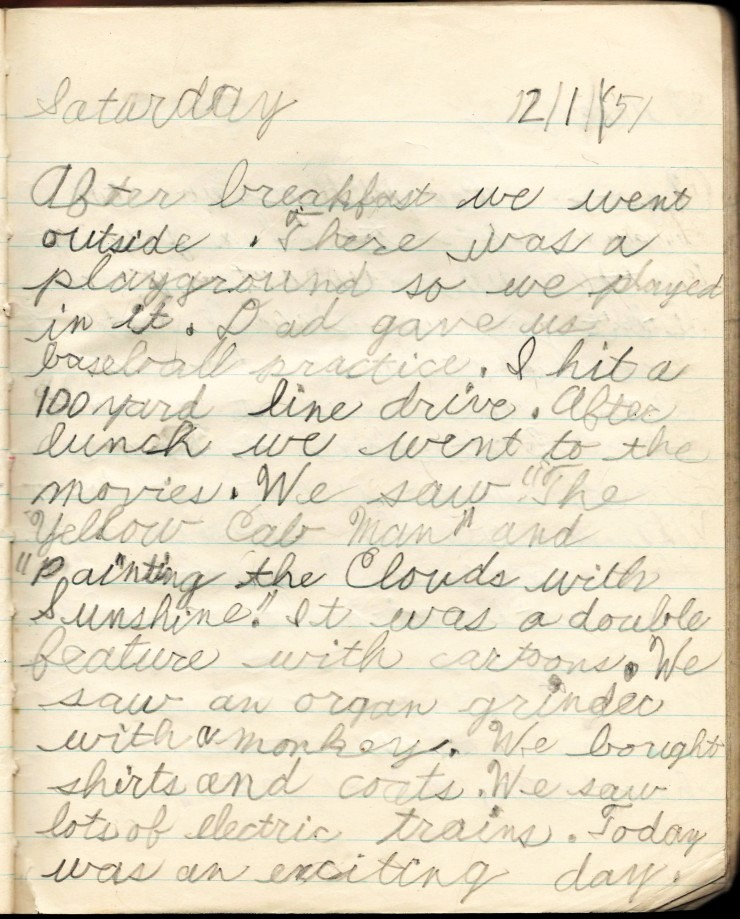 Saturday 12/1/51
After breakfast we went
outside . There was a
playground so we played
in it. Dad gave us
baseball practice. I hit a
100 yard line drive. After
lunch we went to the
movies. We saw "The
Yellow Cab Man" and
"Painting the Clouds with
Sunshine." It was a double
feature with cartoons. We
saw an organ grinder
with a monkey. We bought
shirts and coats. We saw
lots of electric trains. Today
was an exciting day.